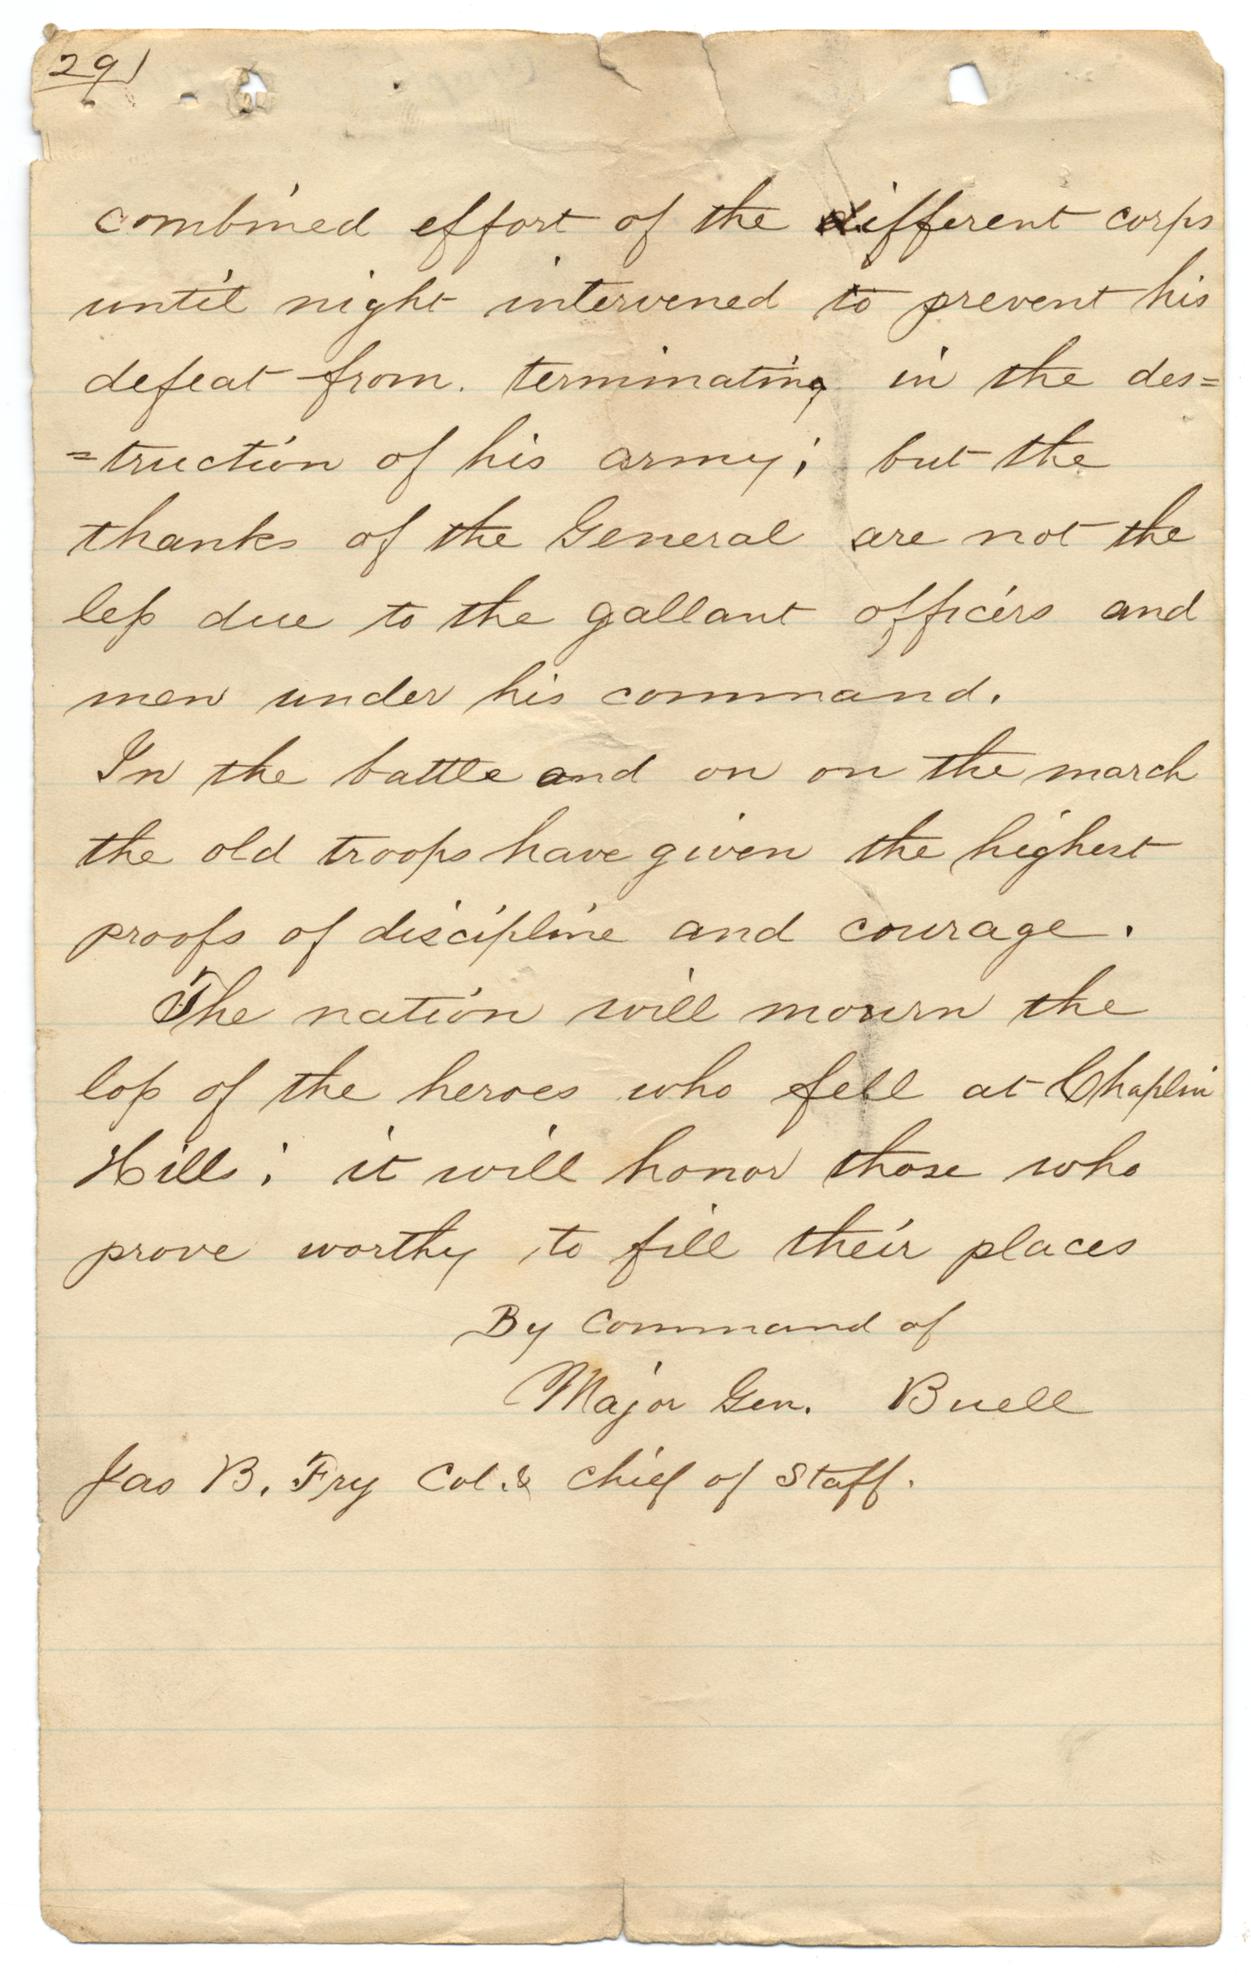 291
combined effort of the different corps
until night intervened to prevent his
defeat from. terminating in the des=
=truction of his army; but the
thanks of the General are not the
less due to the gallant officers and
men under his command.
In the battle and on on the march
the old troops have given the highest
proofs of discipline and courage.
The nation will mourn the
loss of the heroes who fell at Chaplin
Hills; it will honor those who
prove worthy to fill their places
By Command of
Major Gen. Buell
Jas B. Fry Col. & Chief of Staff.